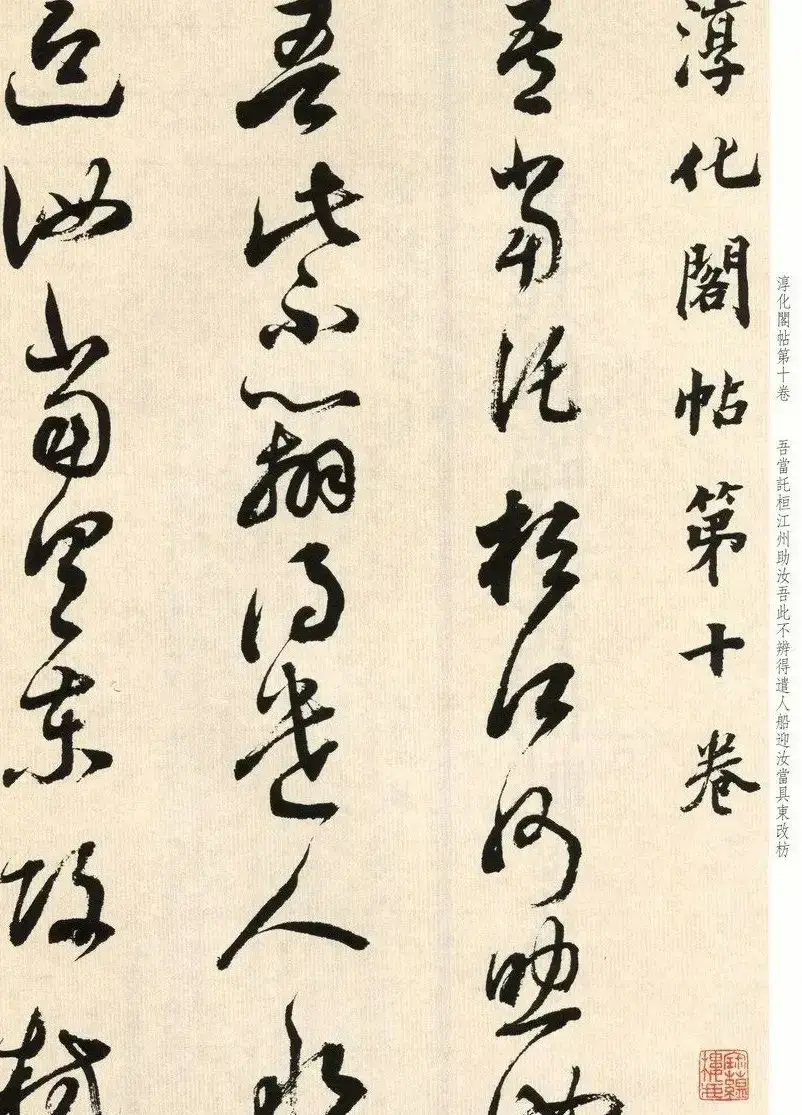 淳化閣帖第十卷　吾當託桓江州助汝吾此不辨得遣人船迎汝當具東改枋
淳化閣帖第十卷
吾當託桓江州助汝
吾此不辨得遣人船
迎汝當具東改枋